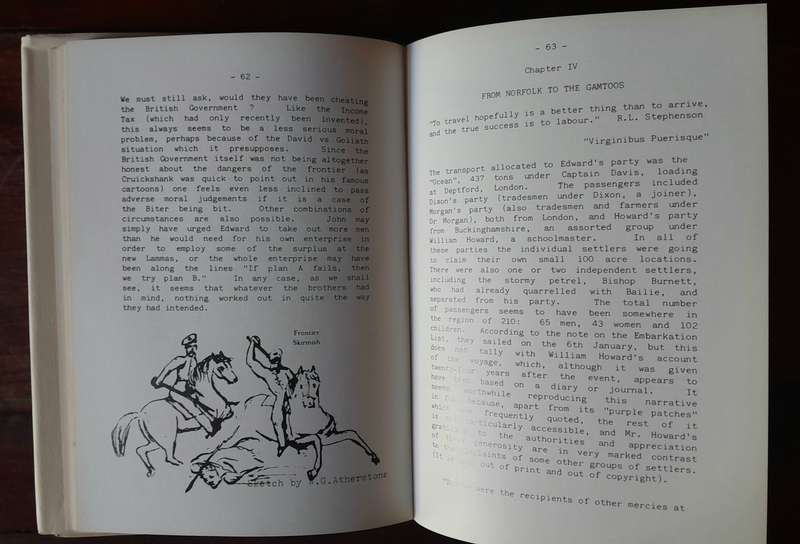 - 62 -
We must still ask, would they have been cheating
the British Government ? Like the Income
Tax (which had only recently been invented),
this always seems to be a less serious moral
problem, perhaps because of the David vs Goliath
situation which it presupposes. Since the
British Government itself was not being altogether
honest about the dangers of the frontier (as
Cruickshank was quick to point out in his famous
cartoons) one feels even less inclined to pass
adverse moral judgements if it is a case of
the Biter being bit. Other combinations of
circumstances are also possible. John may
simply have urged Edward to take out more men
than he would need for his own enterprise in
order to employ some of the surplus at the
new Lammas, or the whole enterprise may have
been along the lines "If plan A fails, then
we try plan B." In any case, as we shall
see, it seems that whatever the brothers had
in mind, nothing worked out in quite the way
they had intended.
Frontier
Skirmish
sketch by W.G.Atherstone
- 63 -
Chapter IV
FROM NORFOLK TO THE GAMTOOS
"To travel hopefully is a better thing than to arrive,
and the true success is to labour." R.L. Stephenson
"Virginibus Puerisque"
The transport allocated to Edward's party was the
"Ocean", 437 tons under Captain Davis, loading
at Deptford, London. The passengers included
Dixon's party (tradesmen under Dixon, a joiner),
Morgan's party (also tradesmen and farmers under
Dr Morgan), both from London, and Howard's party
from Buckinghamshire, an assorted group under
William Howard, a schoolmaster. In all of
these parties the individual settlers were going
to claim their own small 100 acre locations.
There were also one or two independent settlers,
including the stormy petrel, Bishop Burnett,
who had already quarrelled with Bailie, and
separated from his party. The total number
of passengers seems to have been somewhere in
the region of 210: 65 men, 43 women and 102
children. According to the note on the Embarkation
List, they sailed on the 6th January, but this
does not tally with William Howard's account
of the voyage, which, although it was given
twenty-four years after the event, appears to
have been based on a diary or journal. It
seems worthwhile reproducing this narrative
in full because, apart from its "purple patches"
which are frequently quoted, the rest of it
is not particularly accessible, and Mr. Howard's
gratitude to the authorities and appreciation
of their generosity are in very marked contrast
to the complaints of some other groups of settlers.
(It is out of print and out of copyright).
were the recipients of other mercies at